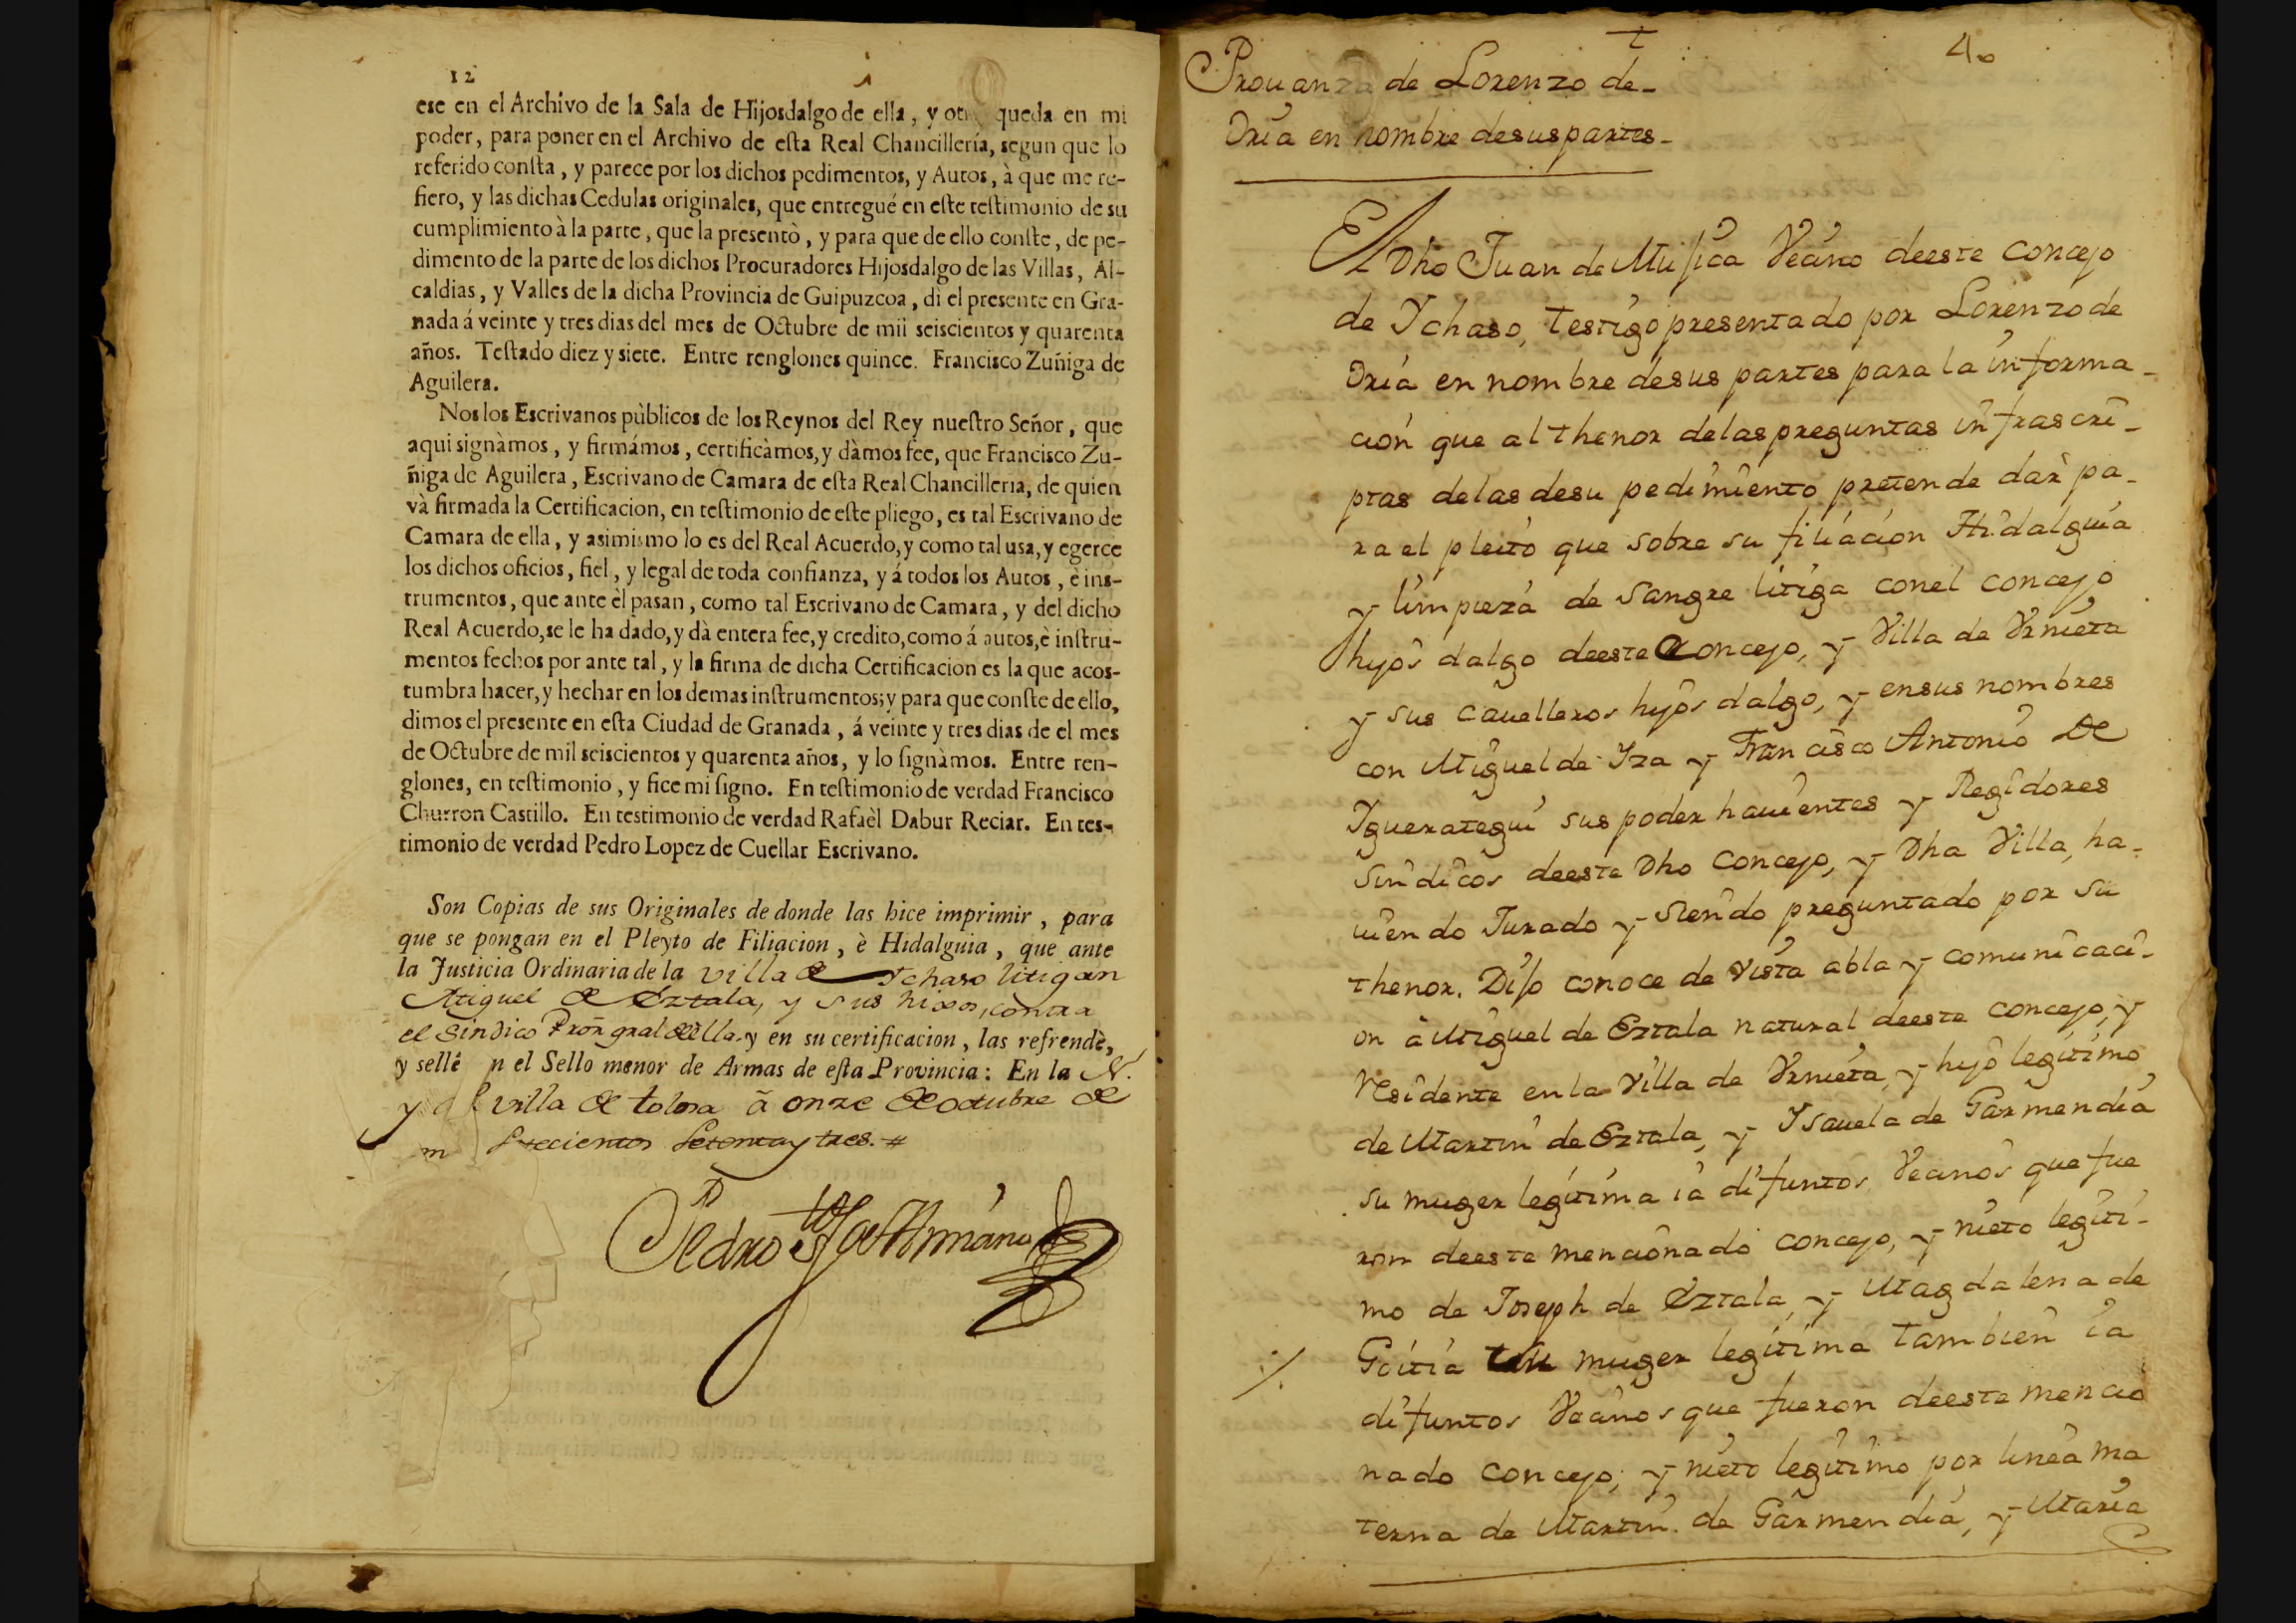 12
ese en el Archivo de la Sala de Hijosdalgo de ella, y otr queda en mi
poder, para poner en el Archivo de esta Real Chancillería, segun que lo
referido consta, y parece por los dichos pedimentos, y Autos, à que me re-
fiero, y las dichas Cedulas originales, que entregué en este testimonio de su
cumplimiento à la parte, que la presentò, y para que de ello conste, de pe-
dimento de la parte de los dichos Procuradores Hijosdalgo de las Villas, Al-
caldias, y Valles de la dicha Provincia de Guipuzcoa, dì el presente en Gra-
nada á veinte y tres dias del mes de Octubre de mil seiscientos y quarenta
años. Testado diez y siete. Entre renglones quince. Francisco Zuñiga de
Aguilera.
Nos los Escrivanos pùblicos de los Reynos del Rey nuestro Señor, que
aqui signàmos, y firmámos, certificàmos, y dàmos fee, que Francisco Zu-
ñiga de Aguilera, Escrivano de Camara de esta Real Chancilleria, de quien
và firmada la Certificacion, en testimonio de este pliego, es tal Escrivano de
Camara de ella, y asimismo lo es del Real Acuerdo, y como tal usa, y egerce
los dichos oficios, fiel, y legal de toda confianza, y á todos los Autos, è ins-
trumentos, que ante èl pasan, como tal Escrivano de Camara, y del dicho
Real Acuerdo, se le ha dado, y dà entera fee, y credito, como á autos, è instru-
mentos fechos por ante tal, y la firma de dicha Certificacion es la que acos-
tumbra hacer, y hechar en los demas instrumentos; y para que conste de ello,
dimos el presente en esta Ciudad de Granada, á veinte y tres dias de el mes
de Octubre de mil seiscientos y quarenta años, y lo signàmos. Entre ren-
glones, en testimonio, y fice mi signo. En testimonio de verdad Francisco
Churron Castillo. En testimonio de verdad Rafaèl Dabur Reciar. En tes-
timonio de verdad Pedro Lopez de Cuellar Escrivano.
Son Copias de sus Originales de donde las hice imprimir, para
que se pongan en el Pleyto de Filiacion, è Hidalguia, que ante
la Justicia Ordinaria de la villa de Ichaso litigan
Miguel de Eztala, y sus hixos, contra
el Sindico Pror̃ gral de ella, y en su certificacion, las refrendè,
y sellé n el Sello menor de Armas de esta Provincia: En la N.
y villa de tolosa ã onze de octubre de
m setecientos Setenta y tres.#
Pedro
40
Prouanza de Lorenzo de-
Oria en nombre de sus partes-
El Dho Juan de Musica Vecino deeste concejo
de Ychaso, testigo presentado por Lorenzo de
Oria en nombre desus partes para la informa-
cion que al thenor delas preguntas infrascri-
ptas delas desu pedimiento pretende dar pa-
ra el pleito que sobre su filiacion Hidalguia
y limpieza de sangre litiga conel concejo
hijos dalgo deeste Concejo, y Villa de Vrnieta
y sus cauelleros hijos dalgo, y ensus nombres
con Miguel de Iza y Francisco Antonio de
Iguerategui sus poder hauientes y Regidores
Sindicos deeste Dho Concejo, y Dha Villa, ha-
uiendo Jurado y siendo preguntado por su
thenor. Dijo conoce de vista abla y comunicaci-
on à Miguel de Eztala natural deeste concejo, y
residente en la Villa de Vrnieta, y hijo legitimo
de Martin de Eztala, y Ysauela de Garmendia
su muger legitima ia difuntos, Vecinos que fue
ron deeste mencionado concejo, y nieto legiti-
mo de Joseph de Eztala, y Magdalena de
Goitia su muger legitima tambien ia
difuntos Vecinos que fueron deeste mencio
nado concejo; y nieto legitimo por linea ma
terna de Martin de Garmendia, y Maria